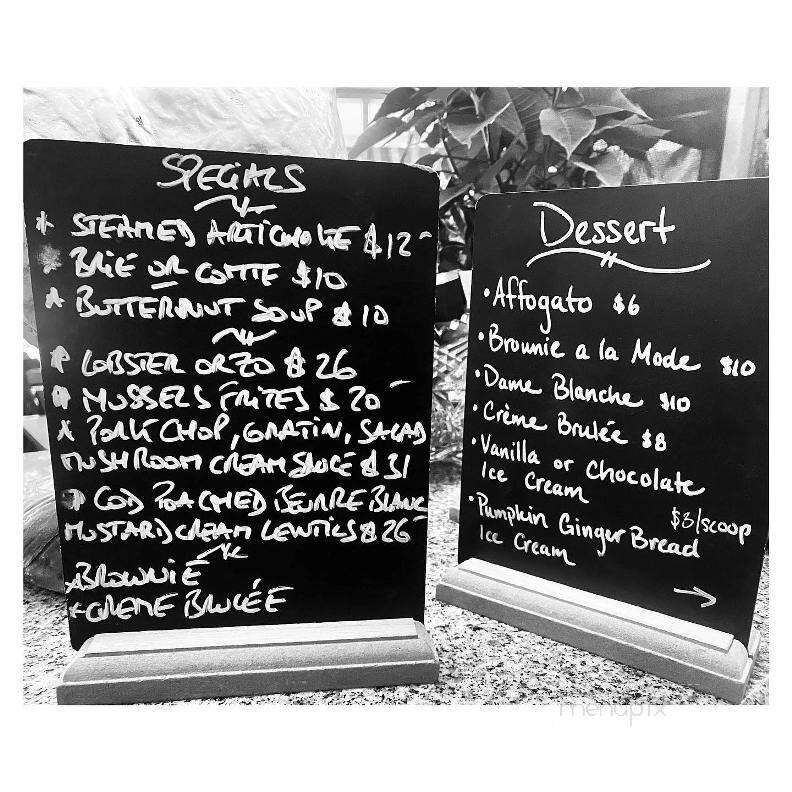 SPECIALS
* STEAMED ARTICHOKE $12-
* BRIE OR COTTE $10
* BUTTERNUT SOUP $10
* LOBSTER ORZO $26
* MUSSELS FRITES $20-
* PORK CHOP, GRATIN, SALAD
MUSHROOM CREAM SAUCE $31
* COD POACHED BEURRE BLANC
MUSTARD CREAM LENTILS $26-
* BROWNIE
* CREME BRULÉE
Dessert
• Affogato $6
• Brownie a la Mode $10
• Dame Blanche $10
• Crème Brulée $8
• Vanilla or Chocolate
Ice Cream
$3/scoop
• Pumpkin Ginger Bread
Ice Cream
→
menupix